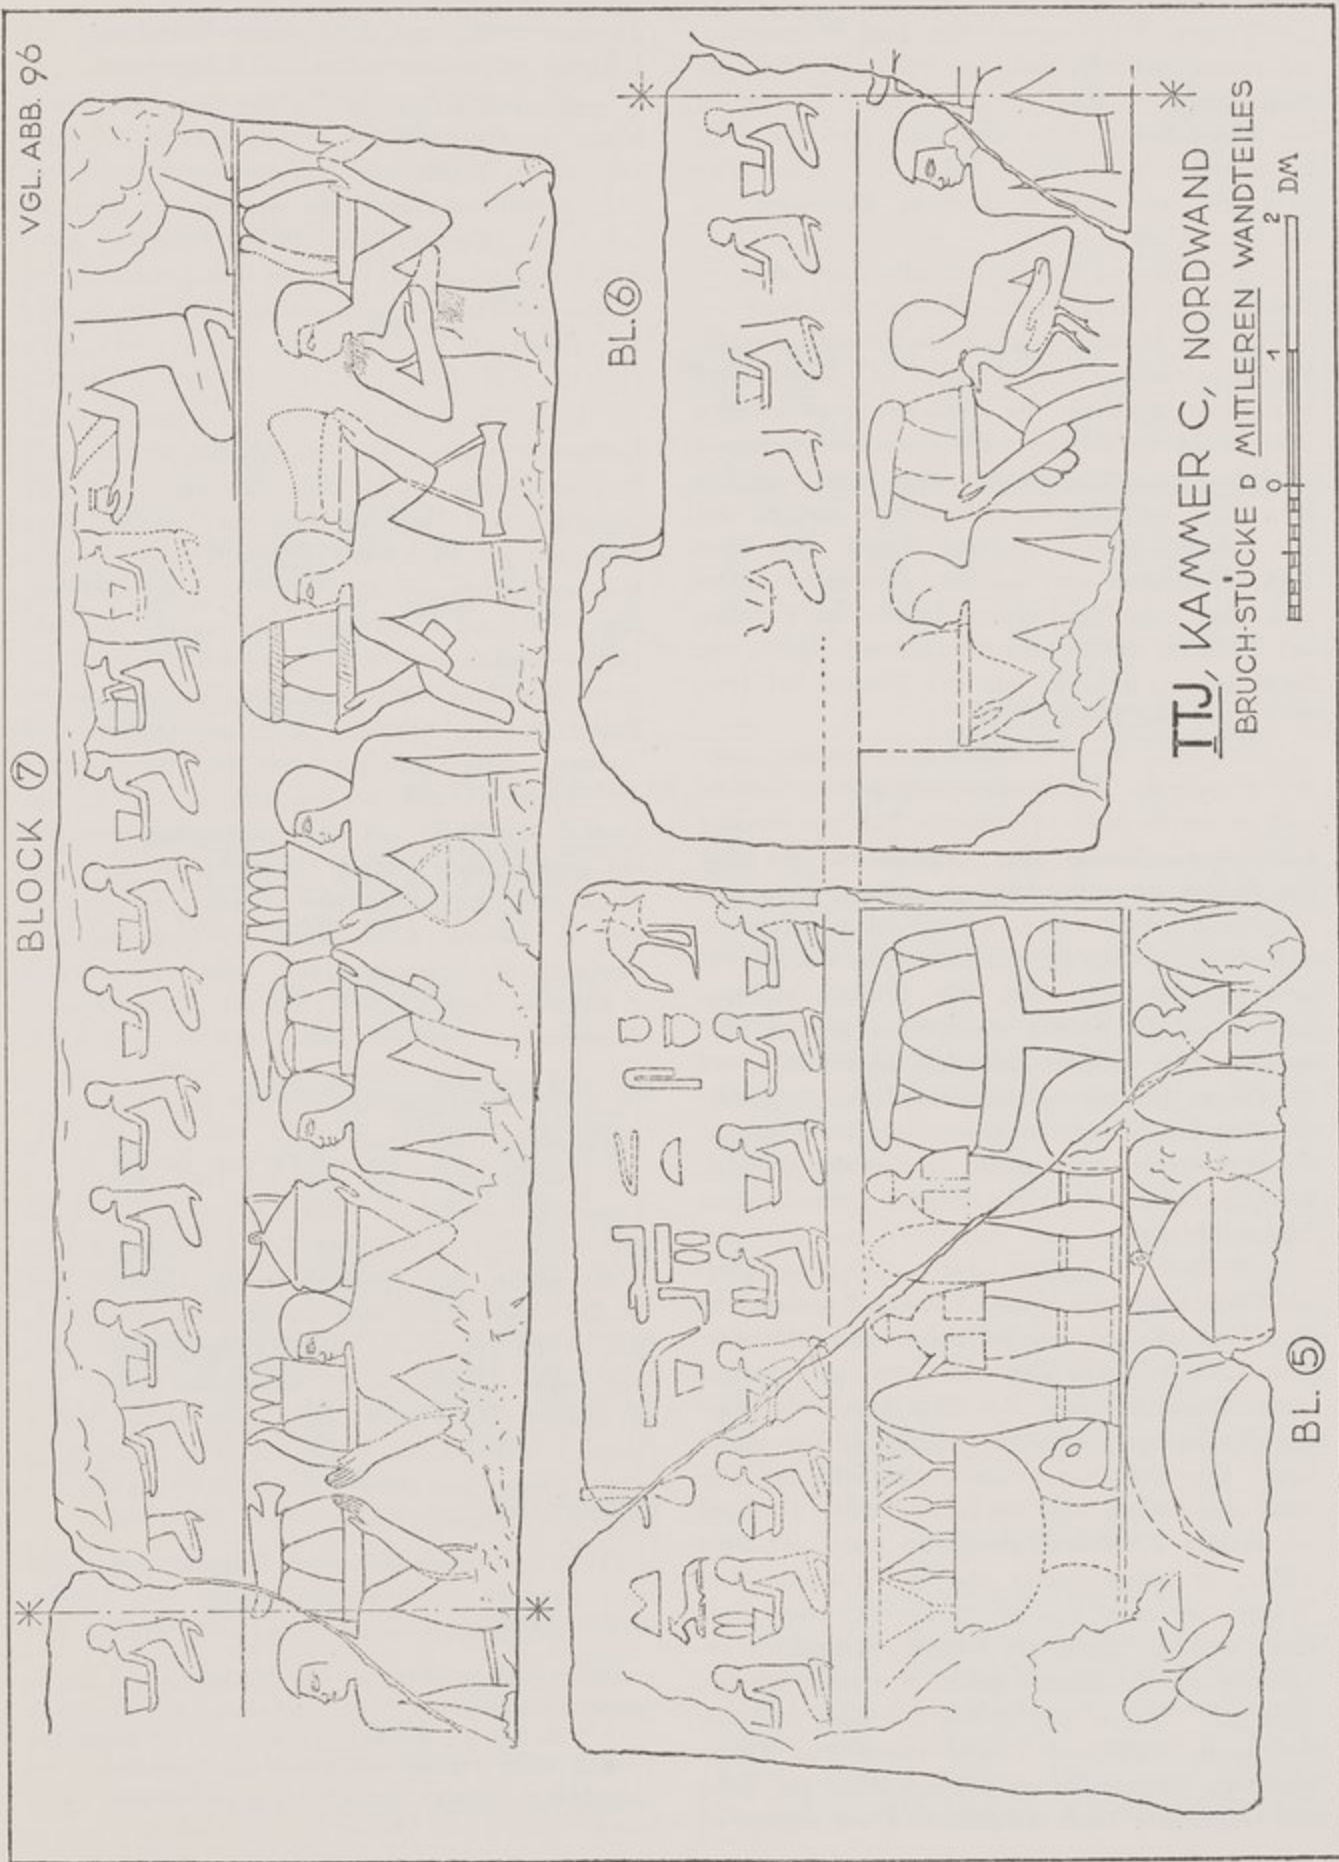 VGL. ABB. 96
BLOCK 7
BL. 6
BL. 5
TTJ, KAMMER C, NORDWAND
BRUCH-STÜCKE D MITTLEREN WANDTEILES
0 1 2 DM